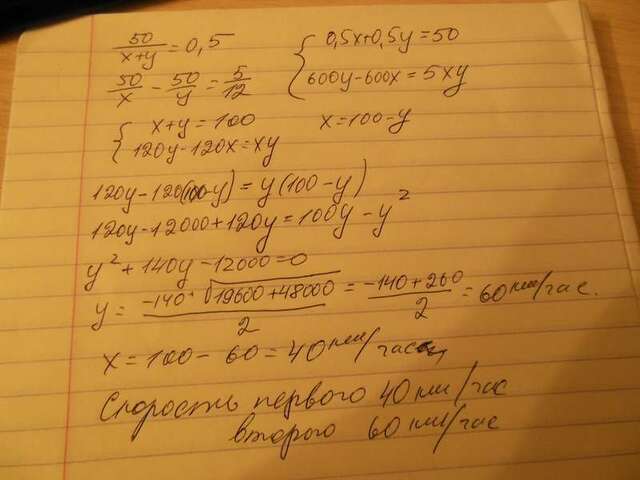 50/(x+y) = 0,5
50/x - 50/y = 5/12
{ 0,5x+0,5y=50
600y-600x=5xy
{ x+y=100
120y-120x=xy
x=100-y
120y-120(100-y)=y(100-y)
120y-12000+120y=100y-y²
y²+140y-12000=0
y = (-140+√(19600+48000))/2 = (-140+260)/2 = 60 км/час.
x = 100-60=40 км/час
Скорость первого 40 км/час
второго 60 км/час